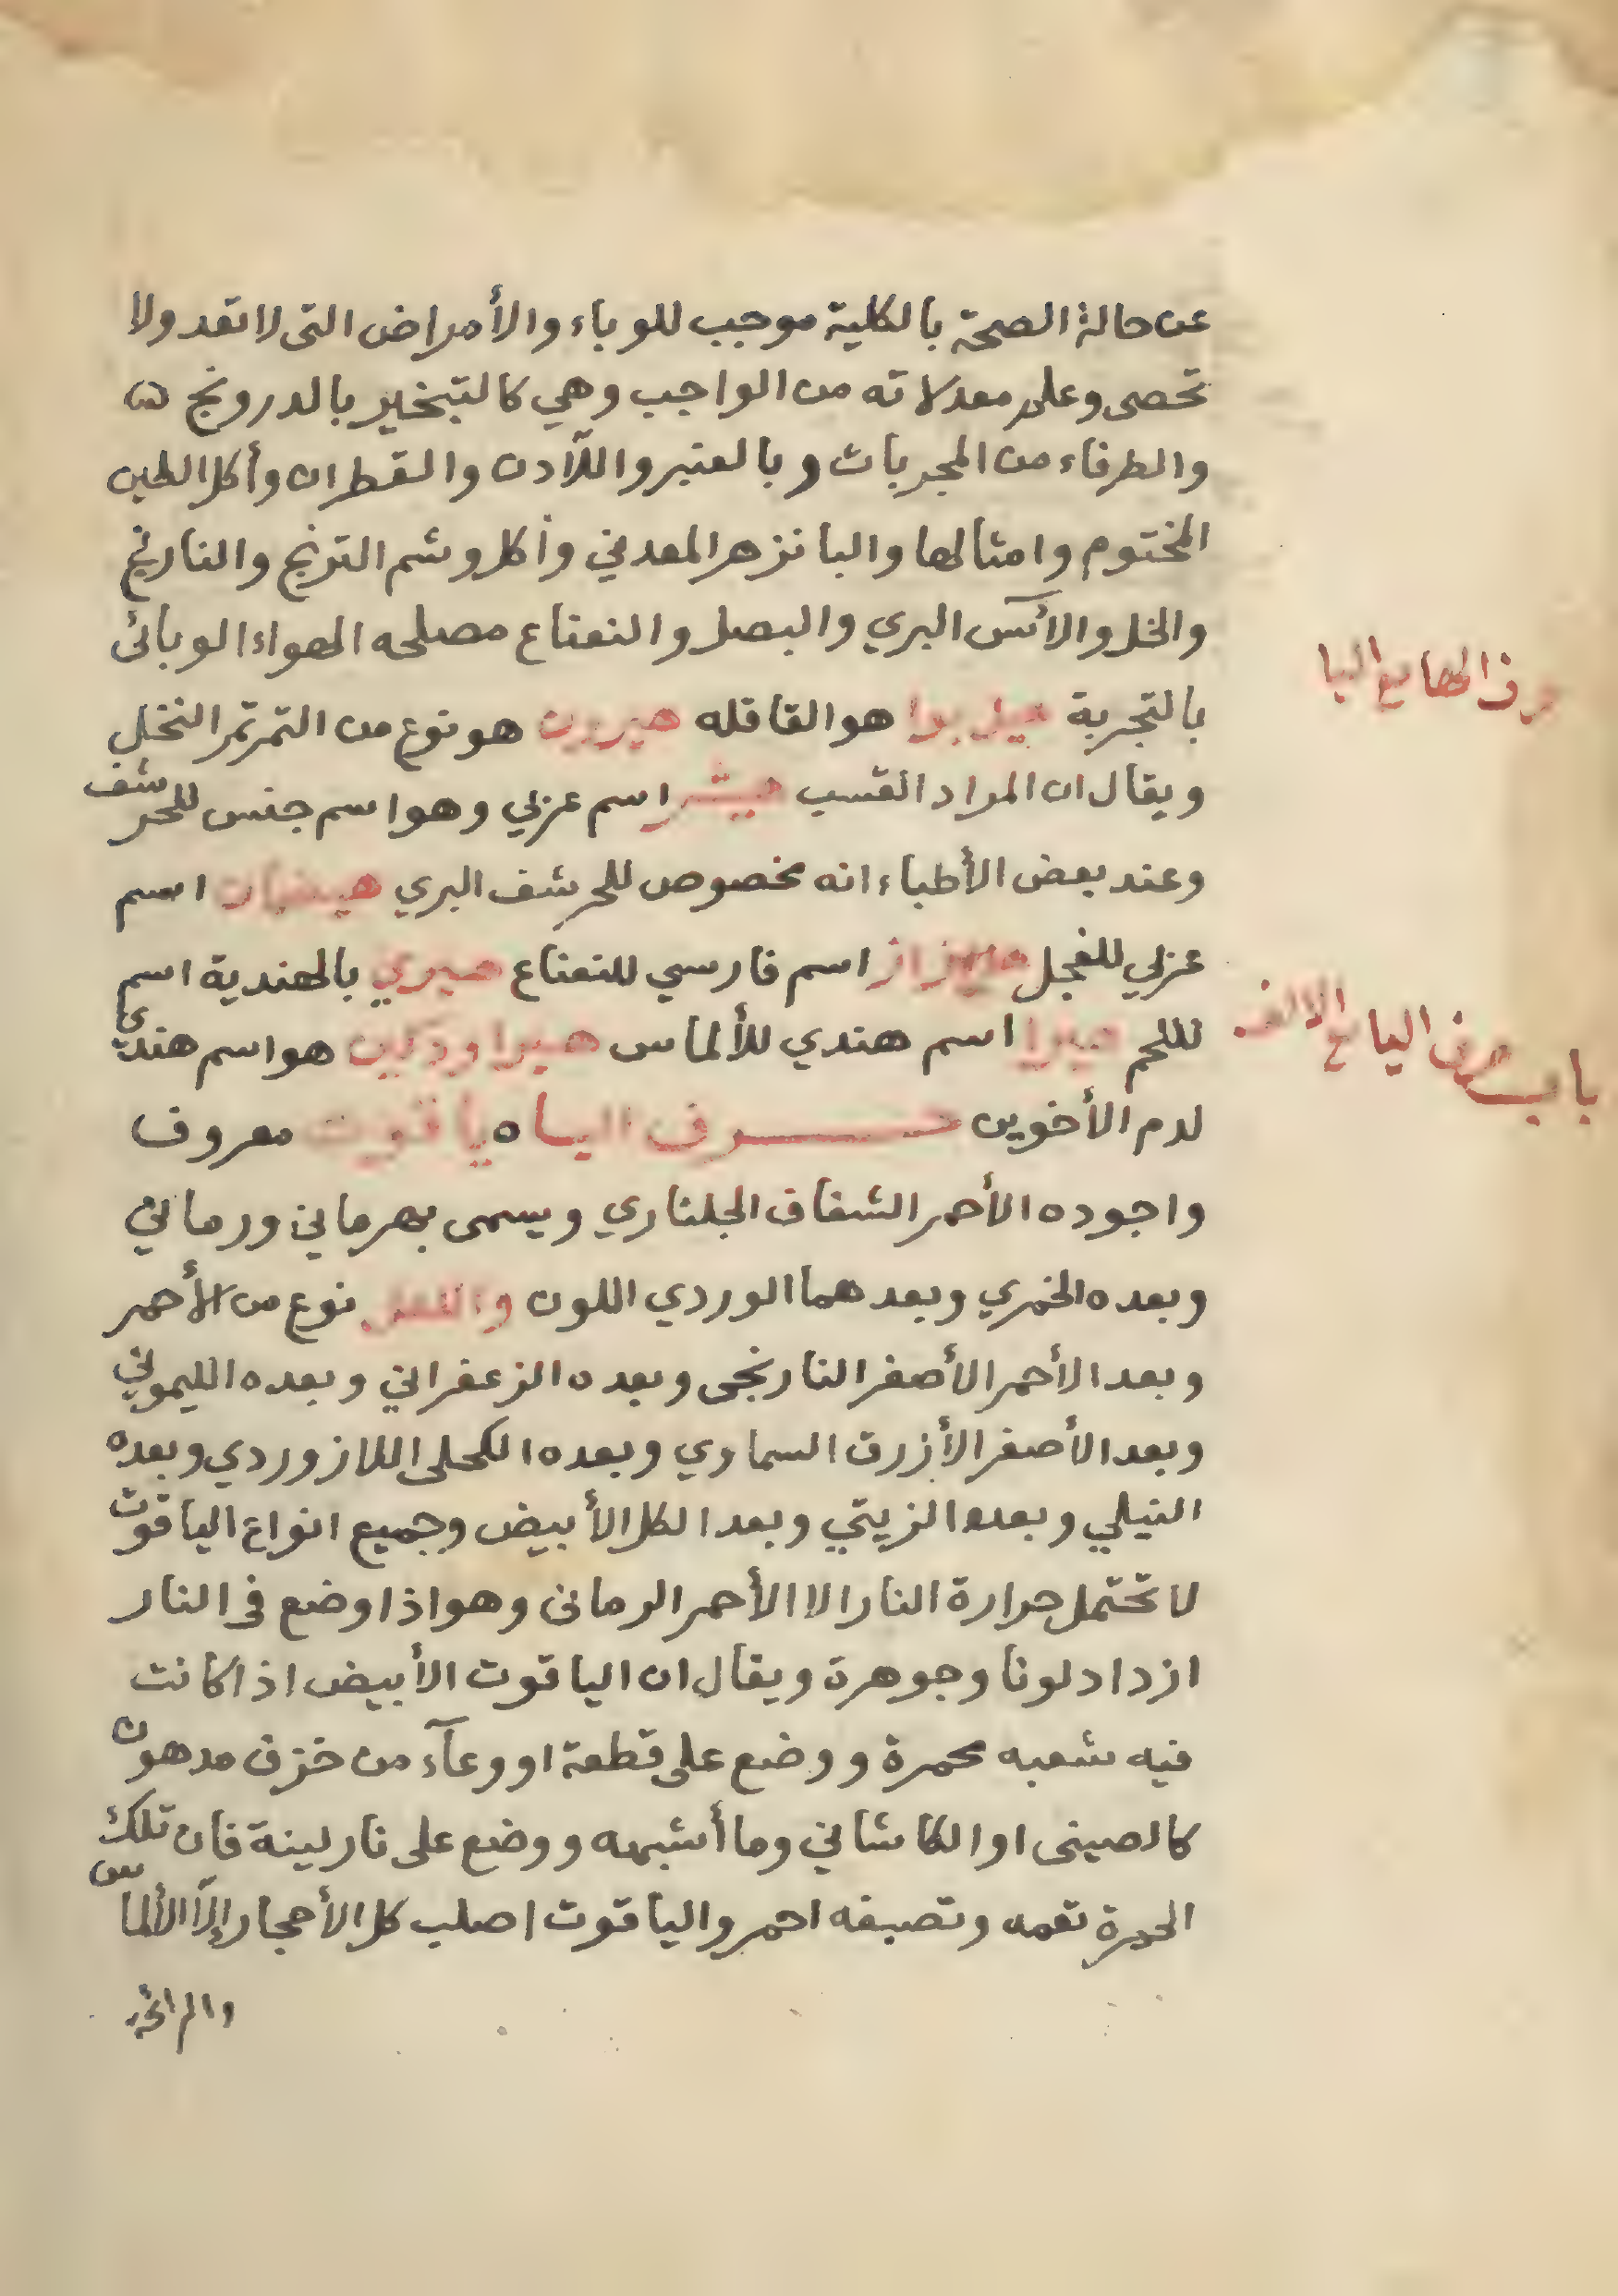 عن حالة الصحة بالكلية موجب للوباء والأمراض التى لا تعد ولا
تحصى وعلى معدلاته من الواجب وهي كالتبخير بالدرونج
والطرفاء من المجربات وبالعنبر واللّادن والقطران وأكل الطين
المختوم وامثالها والبانزهر المعدني وأكل وشم الترنج والنارنج
والخل والآس البري والبصل والنعناع مصلحه الهواء الوبائى
حرف الها مع اليا
بالتجربة هيل بوا هو القاقله هيرون هو نوع من التمر تمر النخل
ويقال ان المراد القسب هيشر اسم عربي وهو اسم جنس للحرشف
وعند بعض الأطباء انه مخصوص للحرشف البري هيضمان اسم
عربي للفجل اسم فارسي للنعناع هيري بالهندية اسم
باب حرف اليا مع الالف
لللحم هيرا اسم هندي للألماس هيرا ودكهن هو اسم هندي
لدم الأخوين حرف الياه ياقوت معروف
واجوده الأحمر الشفاف الجلناري ويسمى بهرماني ورماني
وبعده الخمري وبعدهما الوردي اللون واللعل نوع من الأحمر
وبعد الأحمر الأصفر النارنجى وبعده الزعفراني وبعده الليموني
وبعد الأصفر الأزرق السماوي وبعده الكحلى اللازوردي وبعده
النيلي وبعده الزيتي وبعد الكل الأبيض وجميع انواع الياقوت
لا تحتمل حرارة النار الا الأحمر الرمانى وهو اذا وضع فى النار
ازداد لونا وجوهرة ويقال ان الياقوت الأبيض اذا كانت
فيه شعبه محمرة ووضع على قطعة او وعآء من خزف مدهون
كالصينى او الكاشاني وما أشبهه ووضع على نار لينة فان تلك
الحمرة تعمه وتصبغه احمر والياقوت اصلب كل الأحجار إلّا الألماس